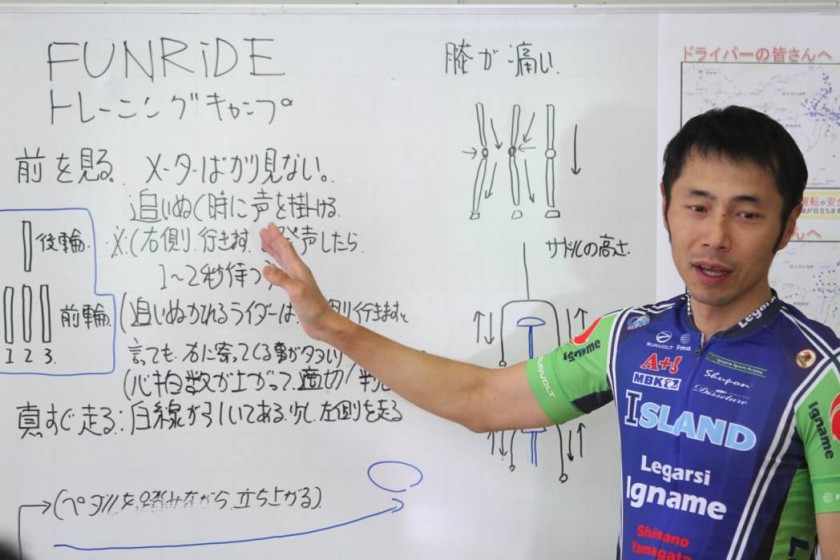 FUNRiDE
トレーニングキャンプ
前を見る。 メーターばかり見ない。
追いぬく時に声を掛ける
※(右側、行きます 発声したら
1〜2秒待つ
後輪
前輪
1 2 3
(追いぬかれるライダーは 側行きますと
言っても、右に寄ってくる事が多い
(心拍数が上がって、適切
真すぐ走る:白線が引いてある少し左側を走る
(ペダルを ながら、立ち上がる)
膝が痛い
サドルの高さ
ドライバーの皆さんへ
Legarsi
Igname
RUNVOLT
RUNVOLT
A+!
MBK
Shupan
ISLAND
Legarsi
Igname
Shinano
Yamagata